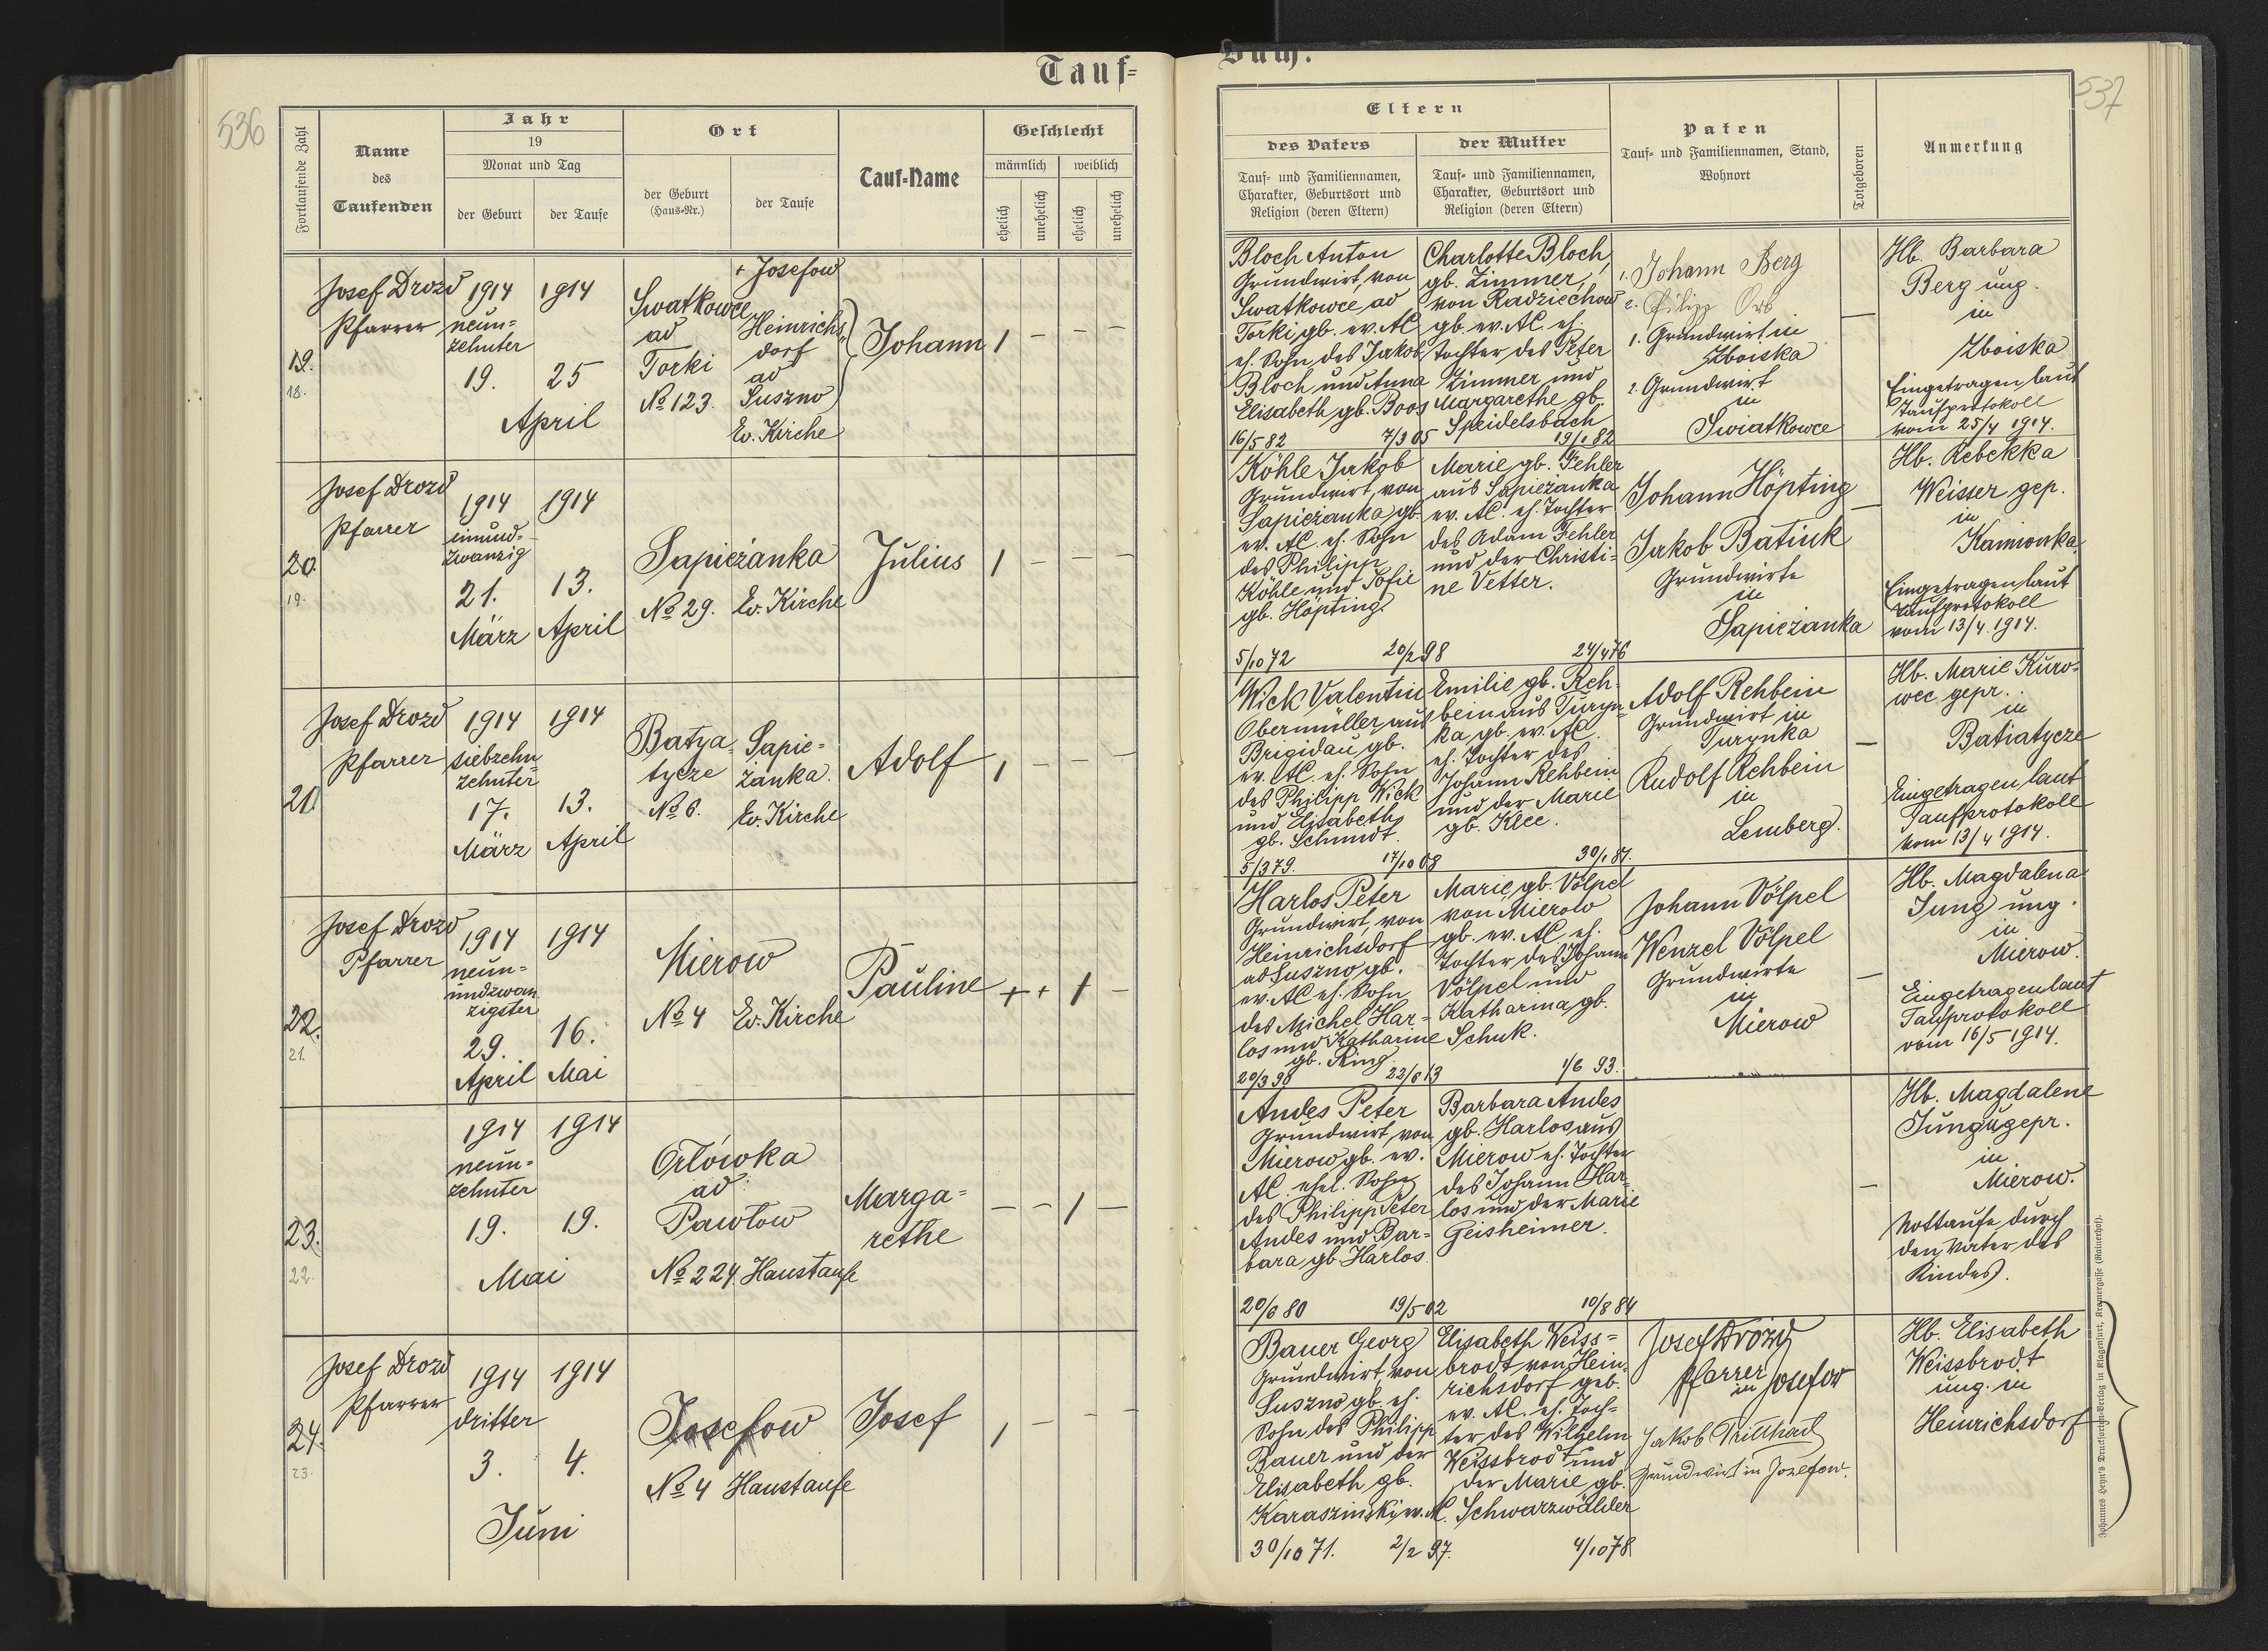 Tauf=
536
Fortlaufende Zahl
Name
des
Taufenden
Jahr
19
Monat und Tag
der Geburt
der Taufe
Ort
der Geburt
(Haus=Nr.)
der Taufe
Tauf=Name
Geschlecht
männlich
weiblich
ehelich
unehelich
ehelich
unehelich
19.
18.
Josef Drozd
Pfarrer
1914
neun=
zehnter
19.
1914
25
April
Swatkowce
ad
Torki
№ 123.
+ Josefow
Heinrichs
dorf
ad
Suszno
Ev. Kirche
Johann
1 — — —
20.
19.
Josef Drozd
Pfarrer
1914
einund=
zwanzig
21.
März
1914
13.
April
Sapieżanka
№ 29. Ev. Kirche
Julius
1 — — —
21
Josef Drozd
Pfarrer
1914
siebzehn
zehnter
17.
März
1914
13.
April
Batya=
tycze
№ 6.
Sapie=
żanka.
Ev. Kirche
Adolf
1 — — —
22.
21.
Josef Drozd
Pfarrer
1914
neun=
undzwan
zigster
29.
April
1914
16.
Mai
Mierow
№ 4 Ev. Kirche
Pauline
+ + 1 —
23.
22.
1914
neun=
zehnter
19.
1914
19.
Mai
Orlówka
ad
Pawlow
№ 224. Haustaufe
Marga=
rethe
— — 1 —
24.
23.
Josef Drozd
Pfarrer
1914
dritter
3.
1914
4.
Juni
Josefow
№ 4 Haustaufe
Josef
1 — — —
Buch.
537
Eltern
des Vaters
Tauf= und Familiennamen,
Charakter, Geburtsort und
Religion (deren Eltern)
der Mutter
Tauf= und Familiennamen,
Charakter, Geburtsort und
Religion (deren Eltern)
Paten
Tauf= und Familiennamen, Stand,
Wohnort
Totgeboren
Anmerkung
Bloch Anton
Grundwirt, von
Swatkowce ad
Torki gb. ev. AC
eh. Sohn des Jakob
Bloch und Anna
Elisabeth gb. Boos
16/5 82
7/3 05
Charlotte Bloch,
gb. Zimmer,
von Radziechow
gb. ev. AC. eh.
Tochter des Peter
Zimmer und
Margarethe gb.
Speidelsbach
19/1 82
1. Johann Berg
2. Philipp Orb
1. Grundwirt in
Zboiska
2. Grundwirt
in
Swiatkowce
—
Hb. Barbara
Berg ung.
in
Zboiska
Eingetragen laut
Taufprotokoll
vom 25/4 1914.
Köhle Jakob
Grundwirt, von
Sapieżanka gb.
ev. AC. eh. Sohn
des Philipp
Köhle und Sofie
gb. Höpting
5/10 72
20/2 98
Marie gb. Fehler
aus Sapieżanka
ev. AC. eh. Tochter
des Adam Fehler
und der Christi=
ne Vetter.
24/4 76
Johann Höpting
Jakob Batiuk
Grundwirte
in
Sapieżanka
—
Hb. Rebekka
Weisser gep.
in
Kamionka
Eingetragen laut
Taufprotokoll
vom 13/4. 1914.
Wick Valentin
Obermüller aus
Brigidau gb.
ev. AC. eh. Sohn
des Philipp Wick
und Elisabeth
gb. Schmidt.
5/3 79.
17/10 08
Emilie gb. Reh=
bein aus Turyn=
ka gb. ev. AC.
eh. Tochter des
Johann Rehbein
und der Marie
gb. Klee.
30/1 87.
Adolf Rehbein
Grundwirt in
Turynka
Rudolf Rehbein
in
Lemberg.
—
Hb. Marie Kuro=
wec gepr.
in
Batiatycze
Eingetragen laut
Taufprotokoll
vom 13/4 1914.
Harlos Peter
Grundwirt, von
Heinrichsdorf
ad Suszno gb.
ev. AC eh. Sohn
des Michel Har=
los und Katharine
gb. Ring.
20/3 90
22/6 13
Marie gb. Völpel
von Mierow
gb. ev. AC eh.
Tochter des Johann
Völpel und
Katharina gb.
Schuk.
1/6 93.
Johann Völpel
Wenzel Völpel
Grundwirte
in
Mierow
—
Hb. Magdalena
Jung ung.
in
Mierow.
Eingetragen laut
Taufprotokoll
vom 16/5 1914.
Andes Peter
Grundwirt, von
Mierow gb. ev.
AC. ehel. Sohn
des Philipp Peter
Andes und Bar=
bara gb. Harlos
20/6 80
19/5 02
Barbara Andes
gb. Harlos aus
Mierow eh. Tochter
des Johann Har=
los und der Marie
Geisheimer.
10/8 84
—
Hb. Magdalene
Jung ugepr.
in
Mierow.
Nottaufe durch
den Vater des
Kindes.
Bauer Georg
Grundwirt, von
Suszno gb. eh.
Sohn des Philipp
Bauer und der
Elisabeth gb.
Karaszinski ev. AC.
30/10 71.
2/2 97.
Elisabeth Weiss=
brodt von Hein=
richsdorf geb.
ev. AC. eh. Toch=
ter des Wilhelm
Weissbrodt und
der Marie gb.
Schwarzwälder
4/10 78
Josef Drozd
Pfarrer
in Josefow
Jakob
Grundwirt in Josefow.
Hb. Elisabeth
Weissbrodt
ung. in
Heinrichsdorf
Johannes Heyn's Drucksorten=Verlag in Klagenfurt, Kramergasse (Rainerhof).